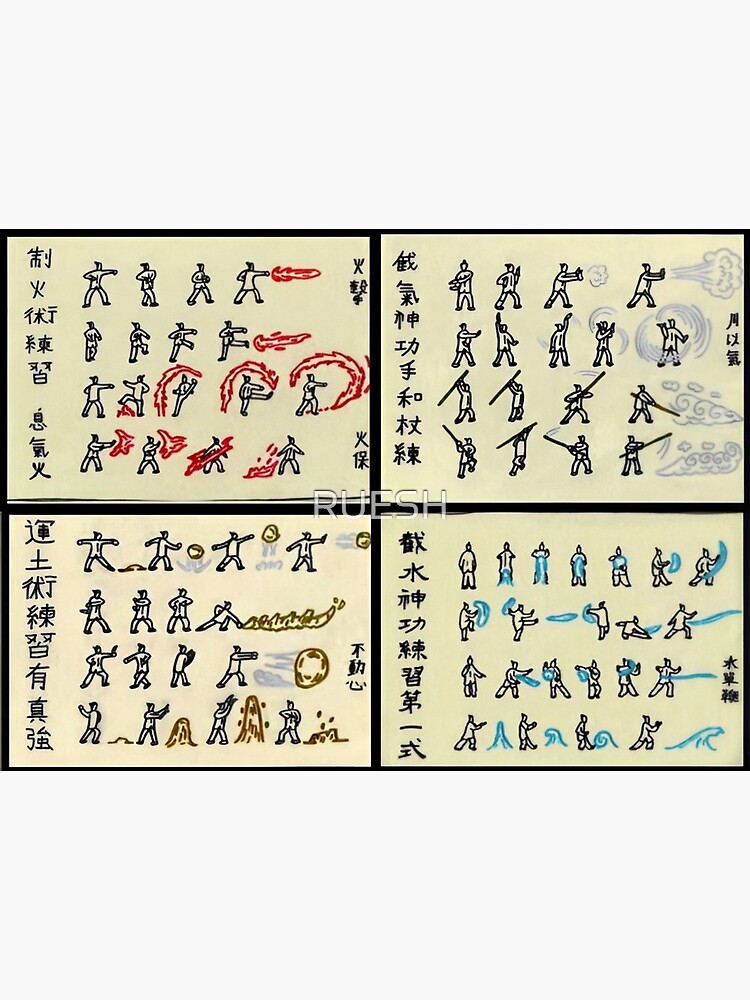 制火術練習 息氣火
火擊
火保
截氣神功手和杖練
用以氣
RUESH
運土術練習有真強
不動心
截水神功練習第一式
水單鞭